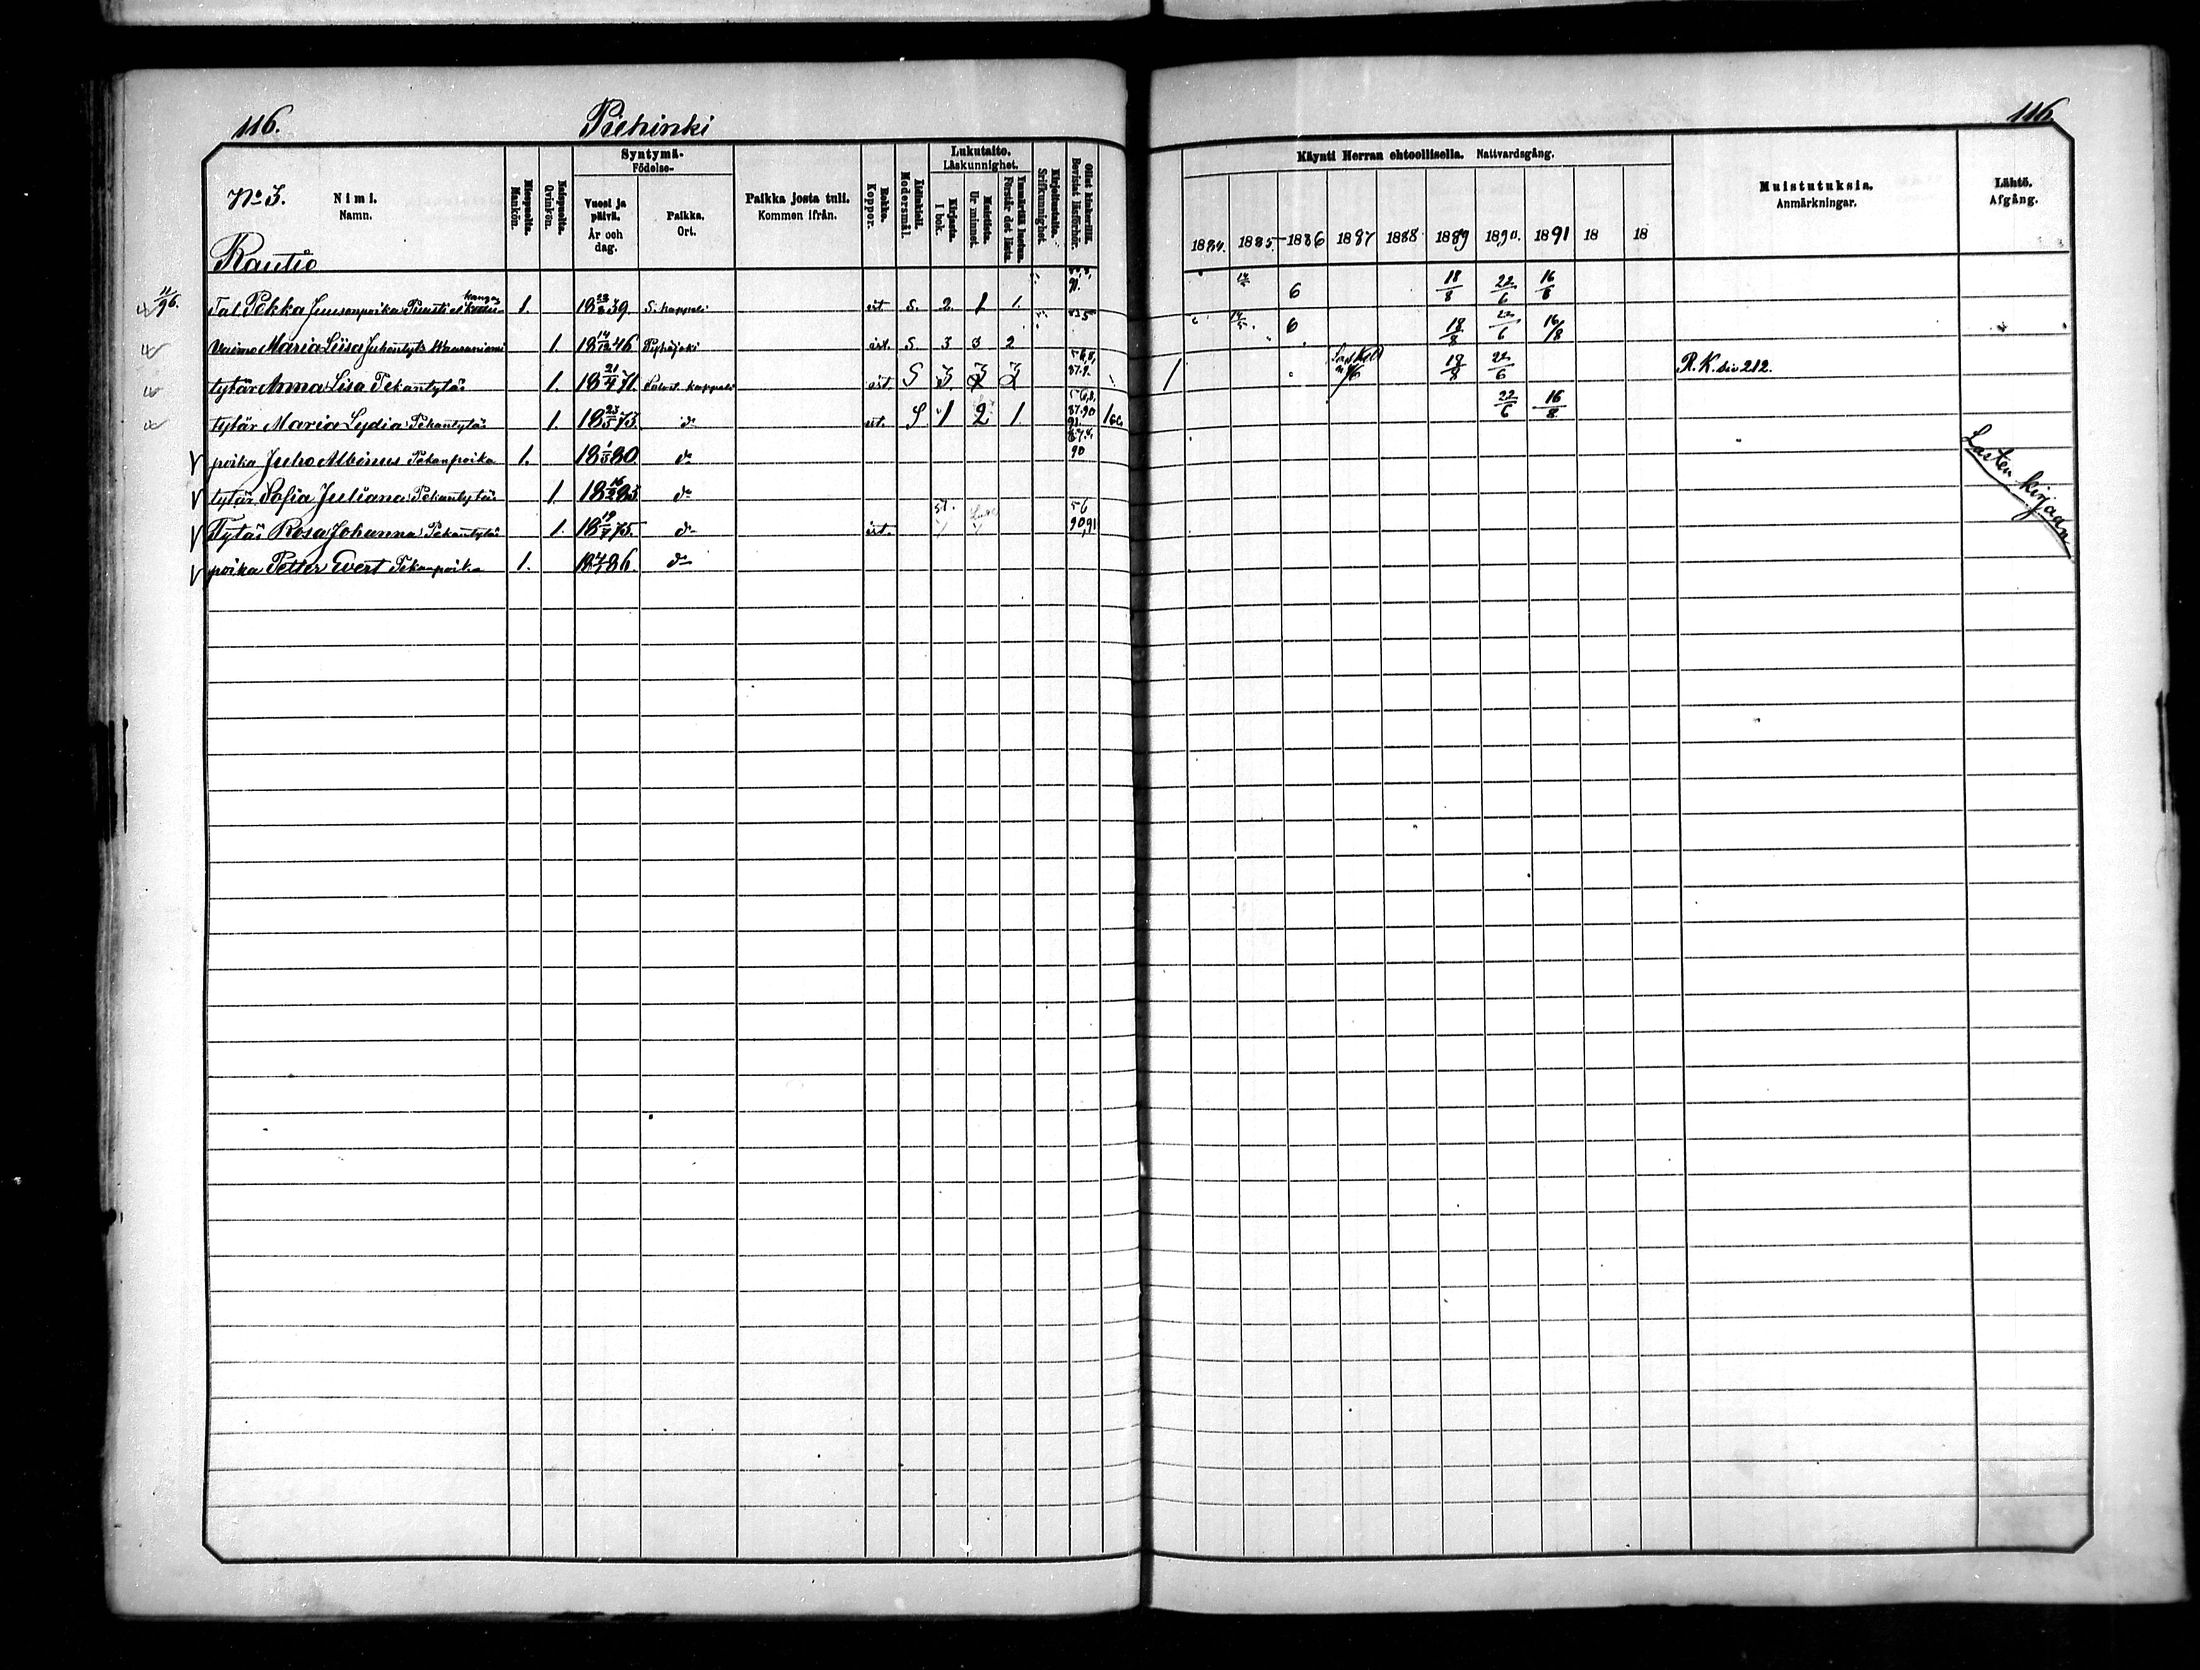 116.
Piehinki
116
No 3.
Nimi.
Namn.
Rautio
Miespuolia.
Mankön.
Naispuolia.
Qvinkön.
Syntymä-
Födelse-
Vuosi ja
päivä.
År och
dag.
Paikka.
Ort.
Paikka josta tuli.
Kommen ifrån.
Rokko.
Koppor.
Äidinkieli.
Modersmål.
Lukutaito.
Läskunnighet.
Kirjasta.
I bok.
Muistista.
Ur minnet.
Ymmärtää luetun.
Förstår det lästa.
Kirjoitustaito.
Srifkunnighet
Ollut kinkerillä.
Bevistat läsförhör.
Käynti Herran ehtoollisella. Nattvardsgång.
1884. 1885. 1886 1887 1888 1889 1890. 1891 18 18
Muistutuksia.
Anmärkningar.
Lähtö.
Afgång.
11/96. Tal. Pekka 1. 18 39. S. kappeli S. 2. 1 1. 6 18/8 22/6 16/8
vaimo Maria Liisa 1. 18 14/12 46 Pyhäjoki S 3 3 2 14/5 6 18/8 22/6 16/8
tytär Anna Lisa Pekantytär 1. 18 21/4 71. kappeli S 3. 18/8 22/6 R. K. siv 212.
tytär Maria Lydia Pekantytär 1 18 23/5 73. do S 1 2 1. 22/6 16/8
poika Juho Albinus Pekanpoika 1. 18 1/3 80. do 90
tytär Sofia Juliana Pekantytär 1. 18 83 do
Tytär Rosa Johanna Pekantytär 1. 18 19/7 75. do 90,91
poika Petter Evert Pekanpoika 1. 18 86. do
Lasten kirjaan